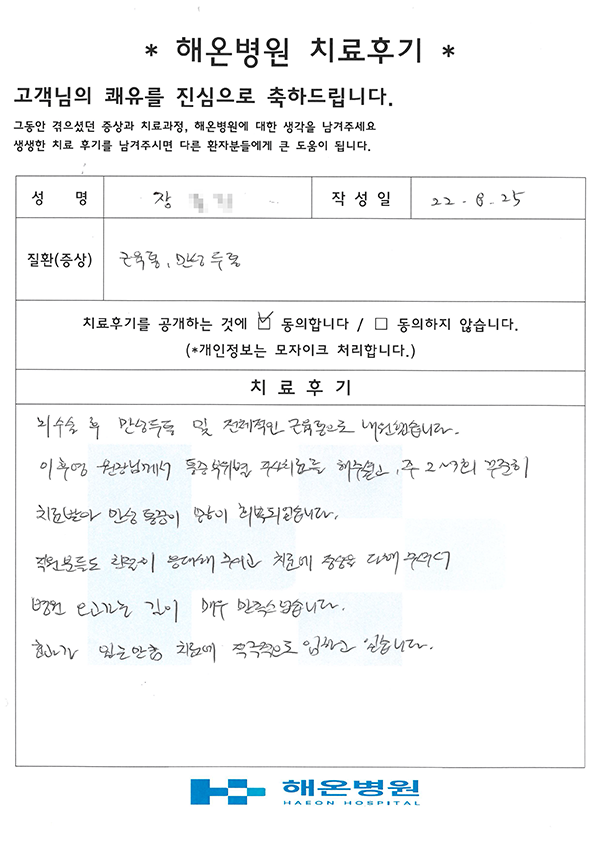 * 해온병원 치료후기 *
고객님의 쾌유를 진심으로 축하드립니다.
그동안 겪으셨던 증상과 치료과정, 해온병원에 대한 생각을 남겨주세요
생생한 치료 후기를 남겨주시면 다른 환자분들에게 큰 도움이 됩니다.
성 명 장 작성일 22-8-25
질환(증상) 근육통, 만성두통
치료후기를 공개하는 것에 ☑ 동의합니다 / ☐ 동의하지 않습니다.
(*개인정보는 모자이크 처리합니다.)
치 료 후 기
뇌수술 후 만성두통 및 전체적인 근육통으로 내원했습니다.
원장님께서 통증부위별 주사치료를 해주셨고, 주 2~3회 꾸준히
치료받아 만성 통증이 많이 회복되었습니다.
직원분들도 친절히 응대해 주시고 치료에 정성을 다해 주셔서
병원 오고가는 길이 매우 만족스럽습니다.
효과가 있는만큼 치료에 적극적으로 임하고 있습니다.
해온병원
HAEON HOSPITAL